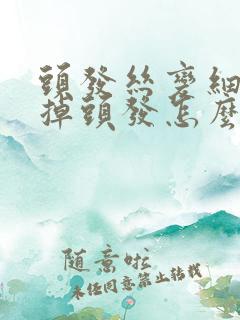 頭發絲變細
掉頭發怎麼
随意啦
未经同意禁止转载